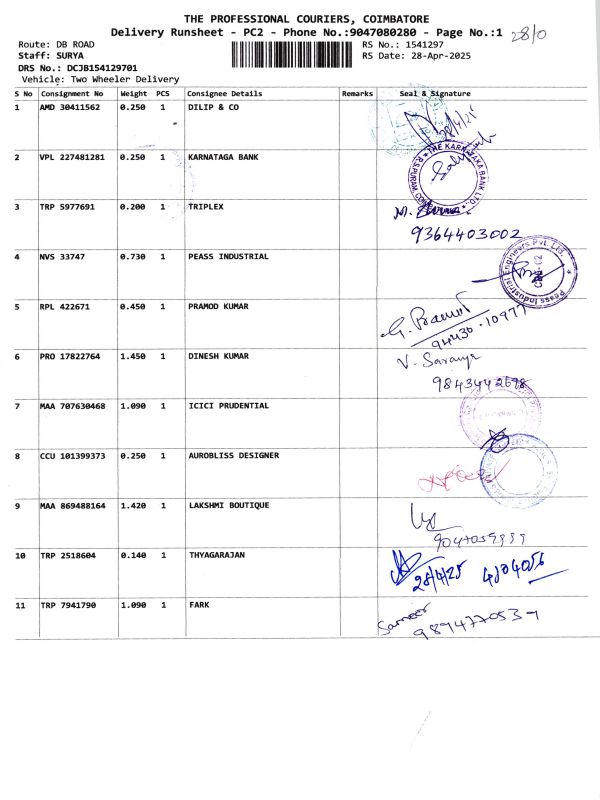 THE PROFESSIONAL COURIERS, COIMBATORE
Delivery Runsheet - PC2 - Phone No.:9047080280 - Page No.:1
28/0
Route: DB ROAD
RS No.: 1541297
Staff: SURYA
RS Date: 28-Apr-2025
DRS No.: DCJB154129701
Vehicle: Two Wheeler Delivery
S No Consignment No Weight PCS Consignee Details Remarks Seal & Signature
1 AMD 30411562 0.250 1 DILIP & CO 28/4/25
2 VPL 227481281 0.250 1 KARNATAGA BANK
THE KARNATAKA BANK LTD.
3 TRP 5977691 0.200 1 TRIPLEX
9364403002
4 NVS 33747 0.730 1 PEASS INDUSTRIAL
Peass Industrial Engineers Pvt. Ltd.
5 RPL 422671 0.450 1 PRAMOD KUMAR G. Pramod
94430-10977
6 PRO 17822764 1.450 1 DINESH KUMAR V. Saranya
9843442698
7 MAA 707630468 1.090 1 ICICI PRUDENTIAL
8 CCU 101399373 0.250 1 AUROBLISS DESIGNER
9 MAA 869488164 1.420 1 LAKSHMI BOUTIQUE
9047059999
10 TRP 2518604 0.140 1 THYAGARAJAN
28/4/25
11 TRP 7941790 1.090 1 FARK Sameer
9894770539